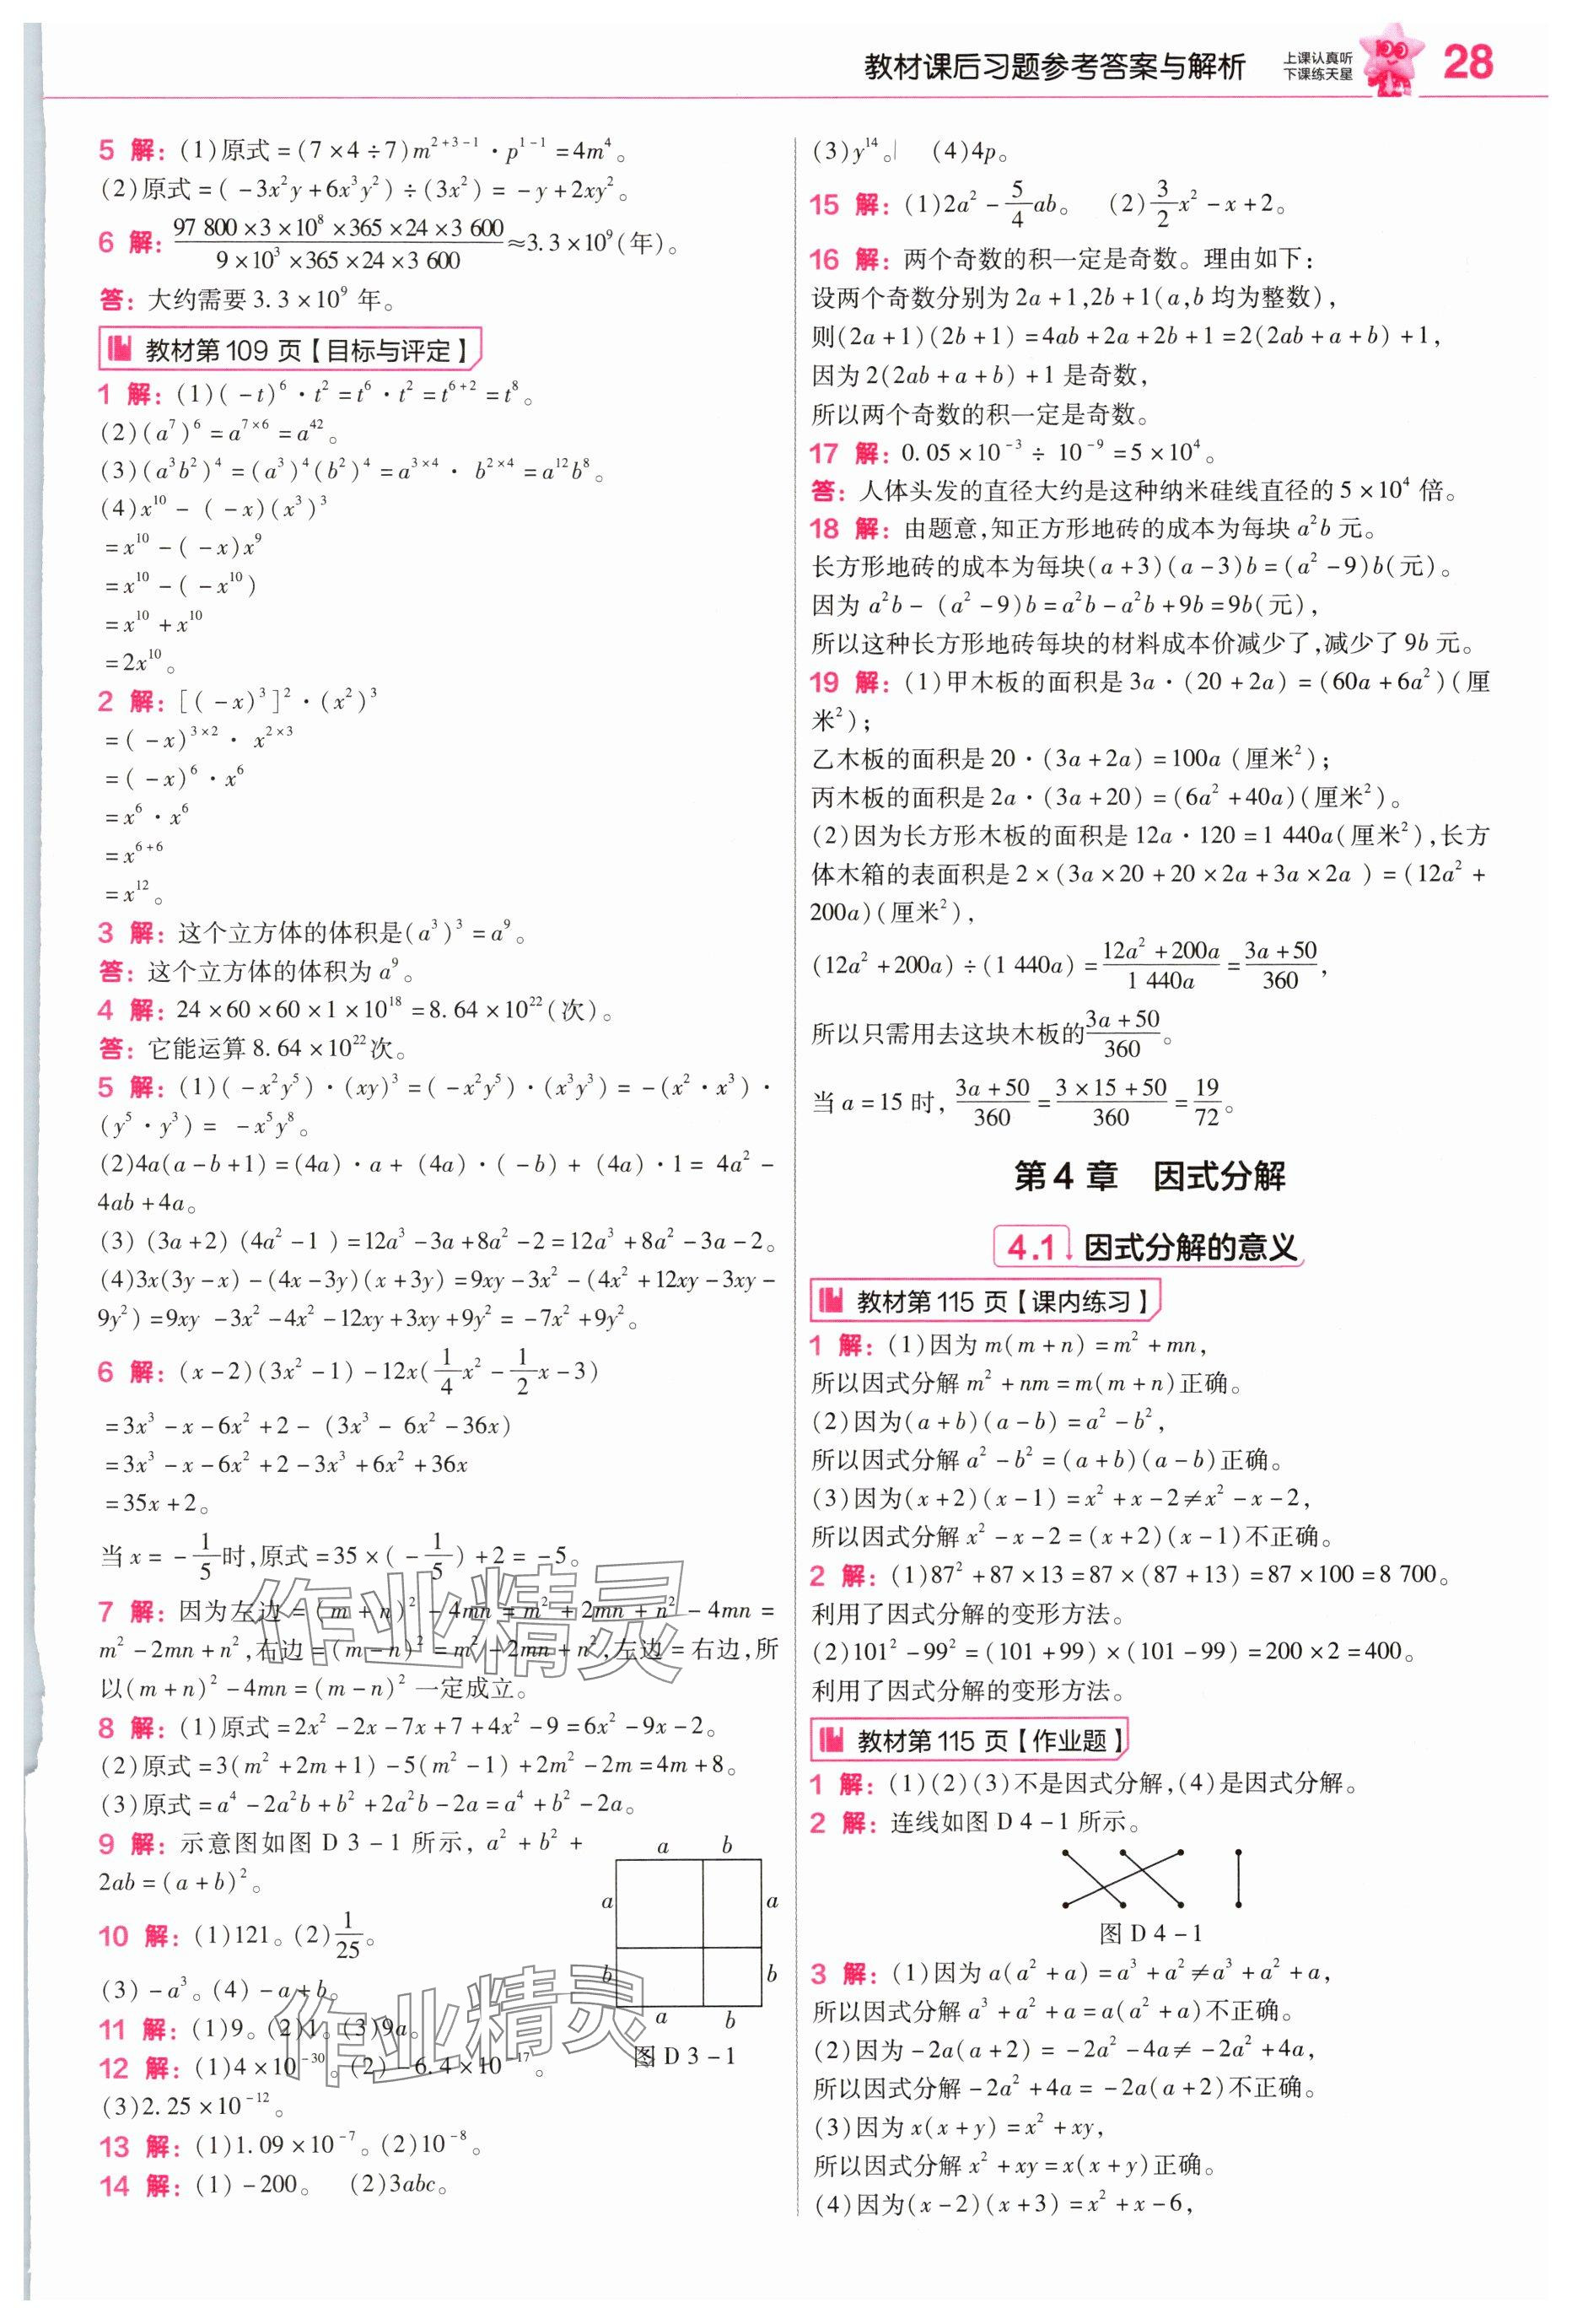 教材课后习题参考答案与解析
上课认真听
下课练天星
28
5 解：(1)原式=(7×4÷7)m²⁺³⁻¹·p¹⁻¹=4m⁴。
(2)原式=(-3x²y+6x³y²)÷(3x²)=-y+2xy²。
6 解：(97 800×3×10⁸×365×24×3 600)/(9×10³×365×24×3 600)≈3.3×10⁹(年)。
答：大约需要3.3×10⁹ 年。
教材第109 页【目标与评定】
1 解：(1)(-t)⁶·t²=t⁶·t²=t⁶⁺²=t⁸。
(2)(a⁷)⁶=a⁷ˣ⁶=a⁴²。
(3)(a³b²)⁴=(a³)⁴(b²)⁴=a³ˣ⁴·b²ˣ⁴=a¹²b⁸。
(4)x¹⁰-(-x)(x³)³
=x¹⁰-(-x)x⁹
=x¹⁰-(-x¹⁰)
=x¹⁰+x¹⁰
=2x¹⁰。
2 解：[(-x)³]²·(x²)³
=(-x)³ˣ²·x²ˣ³
=(-x)⁶·x⁶
=x⁶·x⁶
=x⁶⁺⁶
=x¹²。
3 解：这个立方体的体积是(a³)³=a⁹。
答：这个立方体的体积为a⁹。
4 解：24×60×60×1×10¹⁸=8.64×10²²(次)。
答：它能运算8.64×10²²次。
5 解：(1)(-x²y⁵)·(xy)³=(-x²y⁵)·(x³y³)=-(x²·x³)·
(y⁵·y³)=-x⁵y⁸。
(2)4a(a-b+1)=(4a)·a+(4a)·(-b)+(4a)·1=4a²-
4ab+4a。
(3)(3a+2)(4a²-1)=12a³-3a+8a²-2=12a³+8a²-3a-2。
(4)3x(3y-x)-(4x-3y)(x+3y)=9xy-3x²-(4x²+12xy-3xy-
9y²)=9xy-3x²-4x²-12xy+3xy+9y²=-7x²+9y²。
6 解：(x-2)(3x²-1)-12x(1/4x²-1/2x-3)
=3x³-x-6x²+2-(3x³-6x²-36x)
=3x³-x-6x²+2-3x³+6x²+36x
=35x+2。
当x=-1/5时,原式=35×(-1/5)+2=-5。
7 解：因为左边=(m+n)²-4mn=m²+2mn+n²-4mn=
m²-2mn+n²,右边=(m-n)²=m²-2mn+n²,左边=右边,所
以(m+n)²-4mn=(m-n)²一定成立。
8 解：(1)原式=2x²-2x-7x+7+4x²-9=6x²-9x-2。
(2)原式=3(m²+2m+1)-5(m²-1)+2m²-2m=4m+8。
(3)原式=a⁴-2a²b+b²+2a²b-2a=a⁴+b²-2a。
9 解：示意图如图 D 3-1 所示,a²+b²+
2ab=(a+b)²。
a b
a a
b b
a b
图 D 3-1
10 解：(1)121。(2)1/25。
(3)-a³。(4)-a+b。
11 解：(1)9。(2)1。(3)9a。
12 解：(1)4×10⁻³⁰。(2)-6.4×10⁻¹⁷。
(3)2.25×10⁻¹²。
13 解：(1)1.09×10⁻⁷。(2)10⁻⁸。
14 解：(1)-200。 (2)3abc。
(3)y¹⁴。 (4)4p。
15 解：(1)2a²-5/4ab。 (2)3/2x²-x+2。
16 解：两个奇数的积一定是奇数。理由如下：
设两个奇数分别为2a+1,2b+1(a,b均为整数),
则(2a+1)(2b+1)=4ab+2a+2b+1=2(2ab+a+b)+1,
因为2(2ab+a+b)+1是奇数,
所以两个奇数的积一定是奇数。
17 解：0.05×10⁻³÷10⁻⁹=5×10⁴。
答：人体头发的直径大约是这种纳米硅线直径的5×10⁴ 倍。
18 解：由题意,知正方形地砖的成本为每块a²b元。
长方形地砖的成本为每块(a+3)(a-3)b=(a²-9)b(元)。
因为a²b-(a²-9)b=a²b-a²b+9b=9b(元),
所以这种长方形地砖每块的材料成本价减少了,减少了9b元。
19 解：(1)甲木板的面积是3a·(20+2a)=(60a+6a²)(厘
米²);
乙木板的面积是20·(3a+2a)=100a(厘米²);
丙木板的面积是2a·(3a+20)=(6a²+40a)(厘米²)。
(2)因为长方形木板的面积是12a·120=1 440a(厘米²),长方
体木箱的表面积是2×(3a×20+20×2a+3a×2a)=(12a²+
200a)(厘米²),
(12a²+200a)÷(1 440a)=(12a²+200a)/(1 440a)=(3a+50)/360,
所以只需用去这块木板的(3a+50)/360。
当a=15时,(3a+50)/360=(3×15+50)/360=19/72。
第4章 因式分解
4.1 因式分解的意义
教材第115 页【课内练习】
1 解：(1)因为m(m+n)=m²+mn,
所以因式分解m²+nm=m(m+n)正确。
(2)因为(a+b)(a-b)=a²-b²,
所以因式分解a²-b²=(a+b)(a-b)正确。
(3)因为(x+2)(x-1)=x²+x-2≠x²-x-2,
所以因式分解x²-x-2=(x+2)(x-1)不正确。
2 解：(1)87²+87×13=87×(87+13)=87×100=8 700。
利用了因式分解的变形方法。
(2)101²-99²=(101+99)×(101-99)=200×2=400。
利用了因式分解的变形方法。
教材第115 页【作业题】
1 解：(1)(2)(3)不是因式分解,(4)是因式分解。
2 解：连线如图D 4-1所示。
图 D 4-1
3 解：(1)因为a(a²+a)=a³+a²≠a³+a²+a,
所以因式分解a³+a²+a=a(a²+a)不正确。
(2)因为-2a(a+2)=-2a²-4a≠-2a²+4a,
所以因式分解-2a²+4a=-2a(a+2)不正确。
(3)因为x(x+y)=x²+xy,
所以因式分解x²+xy=x(x+y)正确。
(4)因为(x-2)(x+3)=x²+x-6,
作业精灵
作业精灵